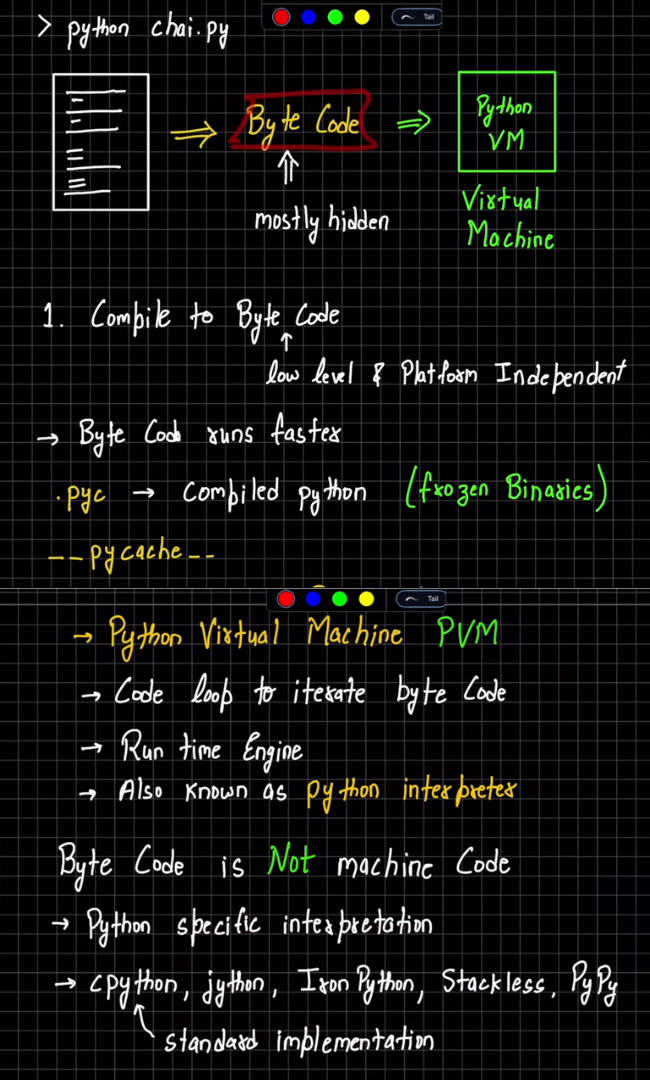 > python chai.py
Tail
Byte Code
Python
VM
mostly hidden
Virtual
Machine
1. Compile to Byte Code
low level & Platform Independent
→ Byte Code runs faster
.pyc → Compiled python (frozen Binaries)
__pycache__
Tail
→ Python Virtual Machine PVM
→ Code loop to iterate byte Code
→ Run time Engine
→ Also known as python interpreter
Byte Code is Not machine Code
→ Python specific interpretation
→ cpython, jython, Iron Python, Stackless, PyPy
standard implementation